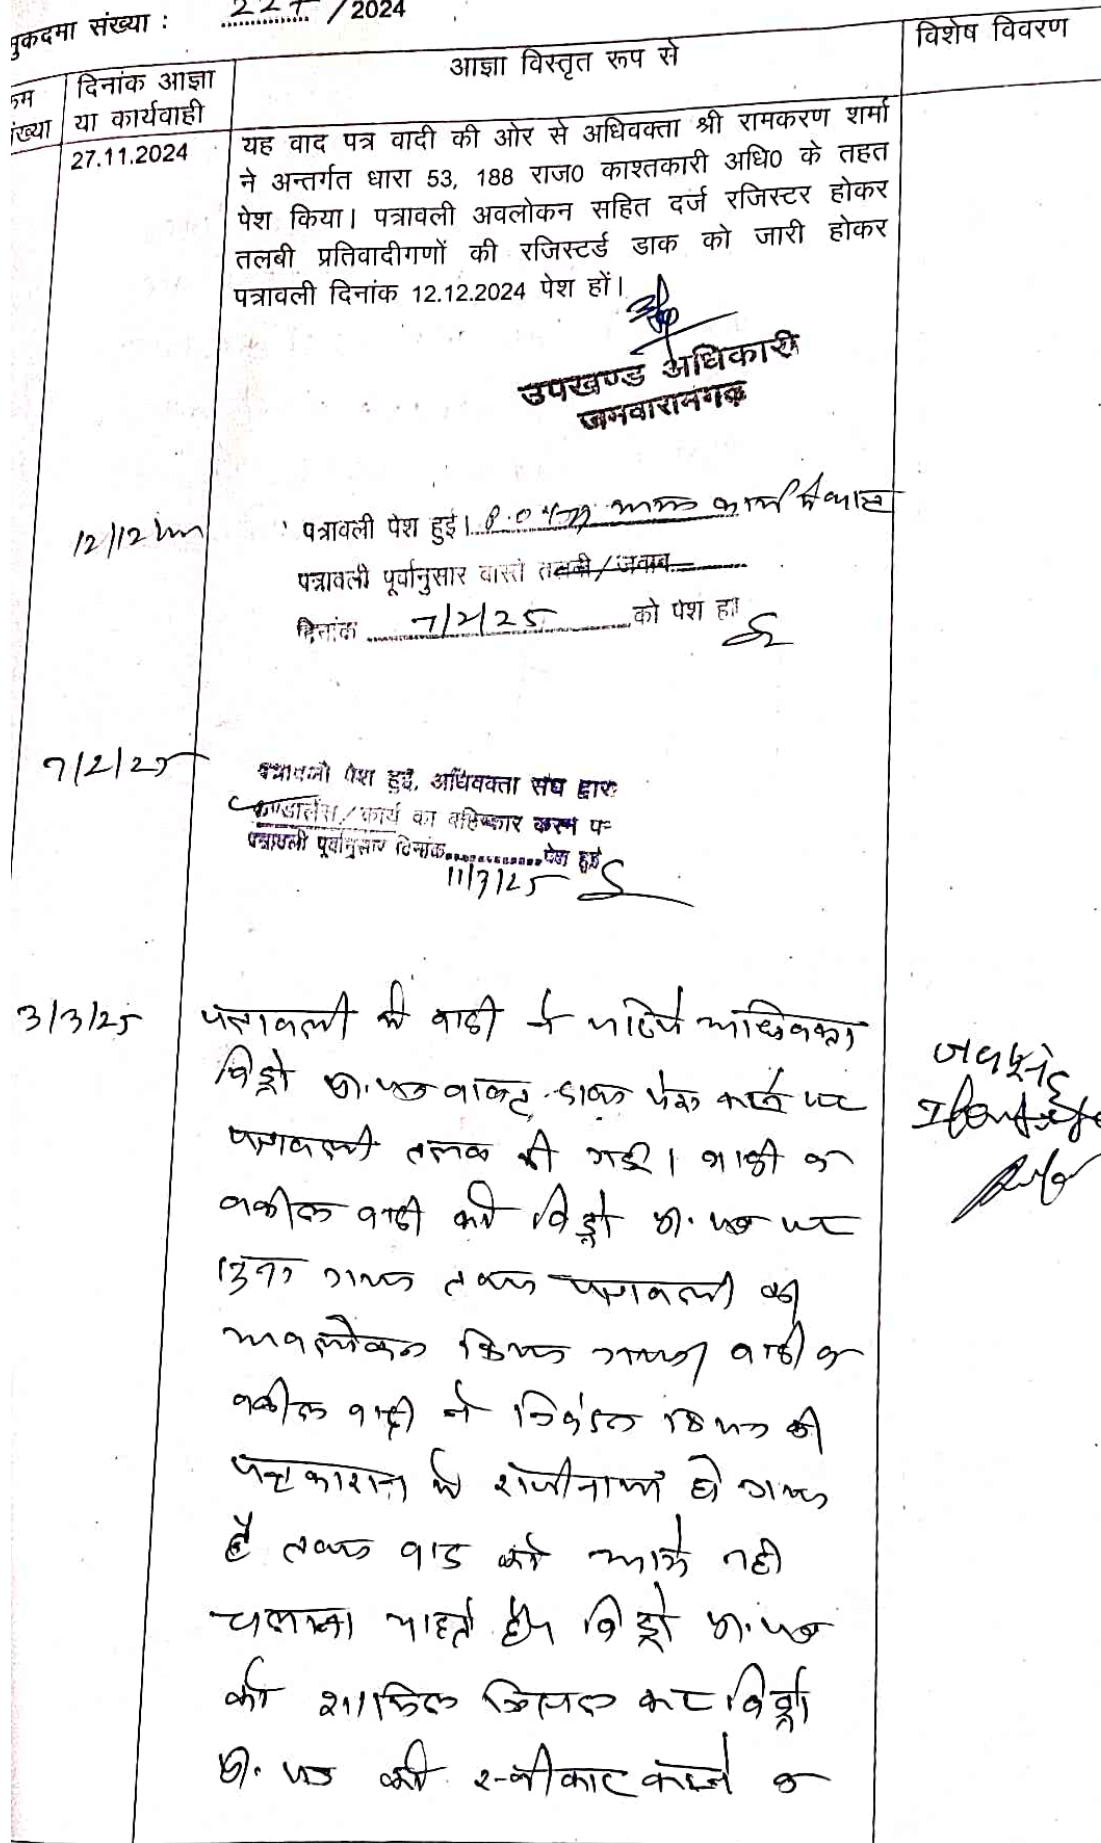 मुकदमा संख्या : 227 /2024
क्रम संख्या
दिनांक आज्ञा या कार्यवाही
आज्ञा विस्तृत रूप से
विशेष विवरण
27.11.2024
यह वाद पत्र वादी की ओर से अधिवक्ता श्री रामकरण शर्मा
ने अन्तर्गत धारा 53, 188 राज0 काश्तकारी अधि0 के तहत
पेश किया। पत्रावली अवलोकन सहित दर्ज रजिस्टर होकर
तलबी प्रतिवादीगणों की रजिस्टर्ड डाक को जारी होकर
पत्रावली दिनांक 12.12.2024 पेश हों।
उपखण्ड अधिकारी
जमवारामगढ
12/12
पत्रावली पेश हुई। P.O
पत्रावली पूर्वानुसार वास्ते तलबी/जवाब
दिनांक 7/2/25 को पेश हो
7/2/25
पत्रावली पेश हुई, अधिवक्ता संघ द्वारा
कण्डोलेंस/कार्य का बहिष्कार करने पर
पत्रावली पूर्वानुसार दिनांक पेश हुई
11/3/25
3/3/25
पत्रावली में वादी ने जरिये अधिवक्ता
विड्रो प्रा. पत्र पेश करने पर
पत्रावली तलब की गई। वादी व
वकील वादी को विड्रो प्रा. पत्र पर
सुना गया तथा पत्रावली का
अवलोकन किया गया। वादी व
वकील वादी ने निवेदन किया की
पक्षकारान में राजीनामा हो गया
है तथा वाद को आगे नही
चलाना चाहते है। विड्रो प्रा. पत्र
को शामिल मिसल कर विड्रो
प्रा. पत्र को स्वीकार करने व